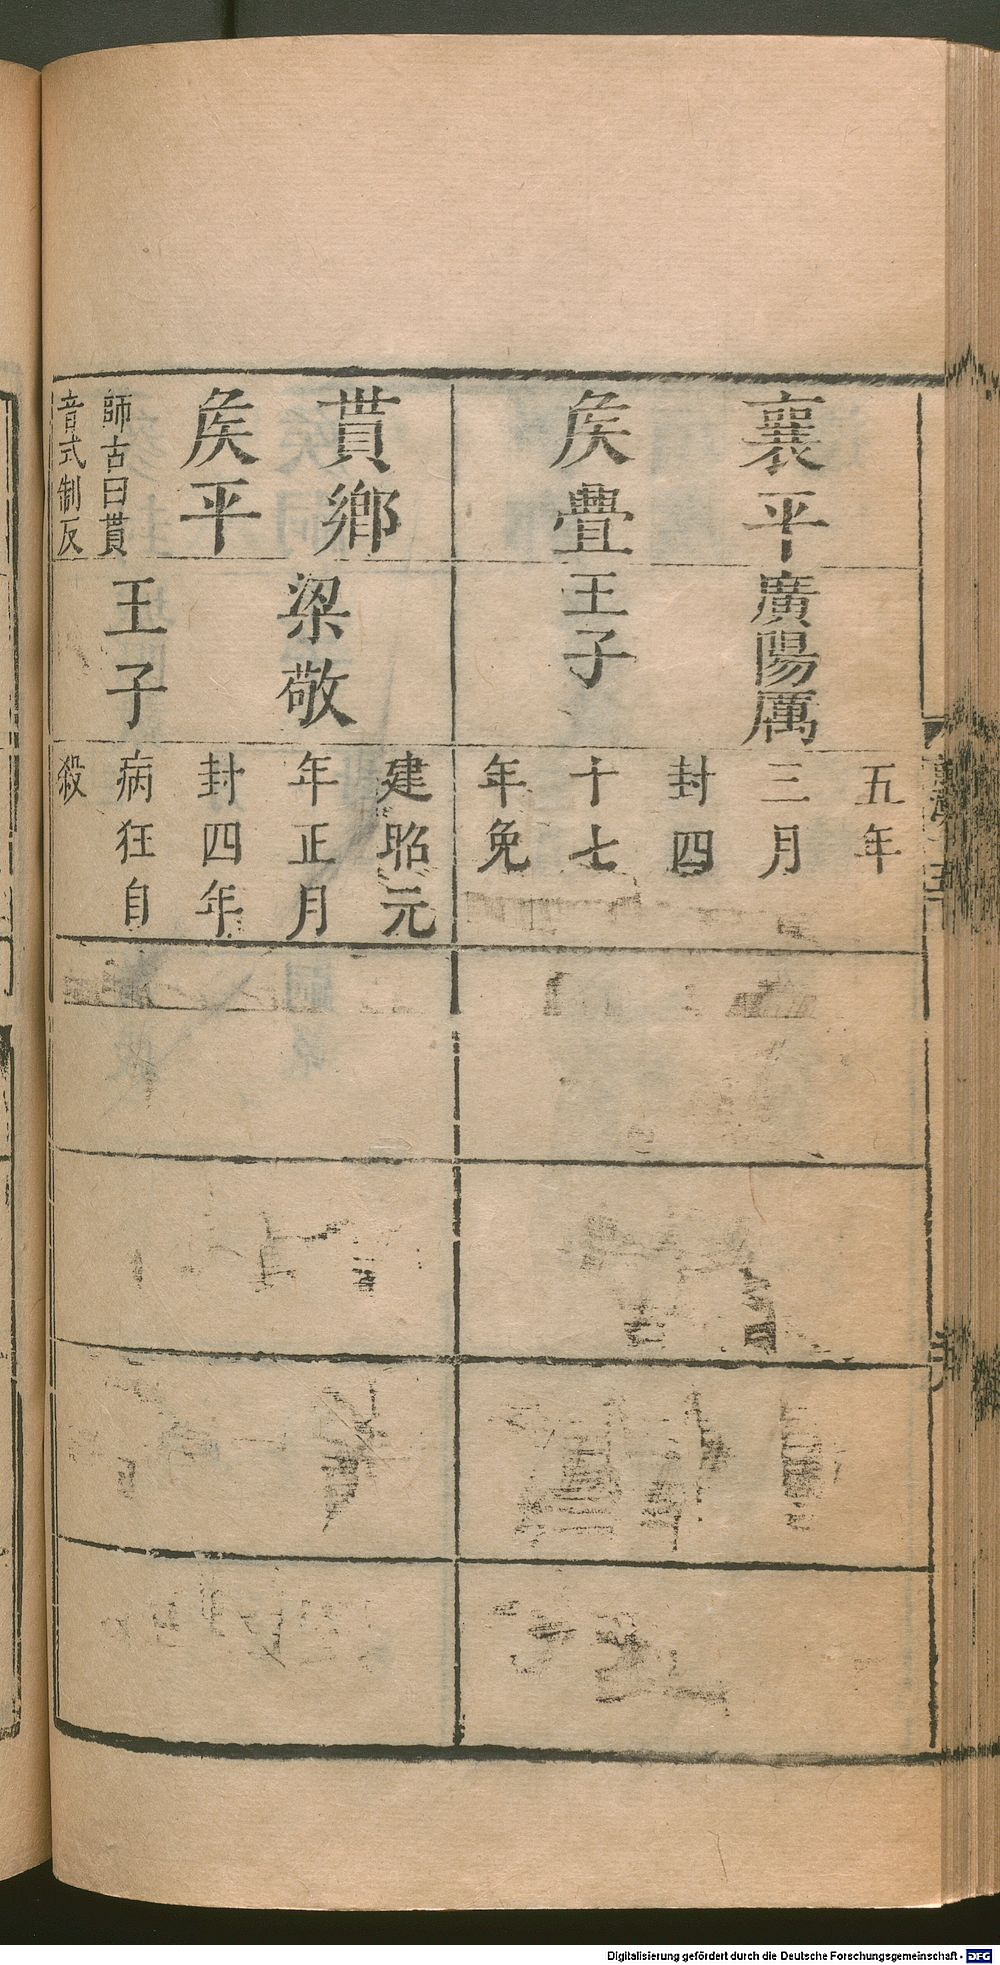 襄平
矦疊
廣陽厲
王子
五年
三月
封四
十七
年免
貰鄉
矦平
師古曰貰
音式制反
梁敬
王子
建昭元
年正月
封四年
病狂自
殺
Digitalisierung gefördert durch die Deutsche Forschungsgemeinschaft - DFG